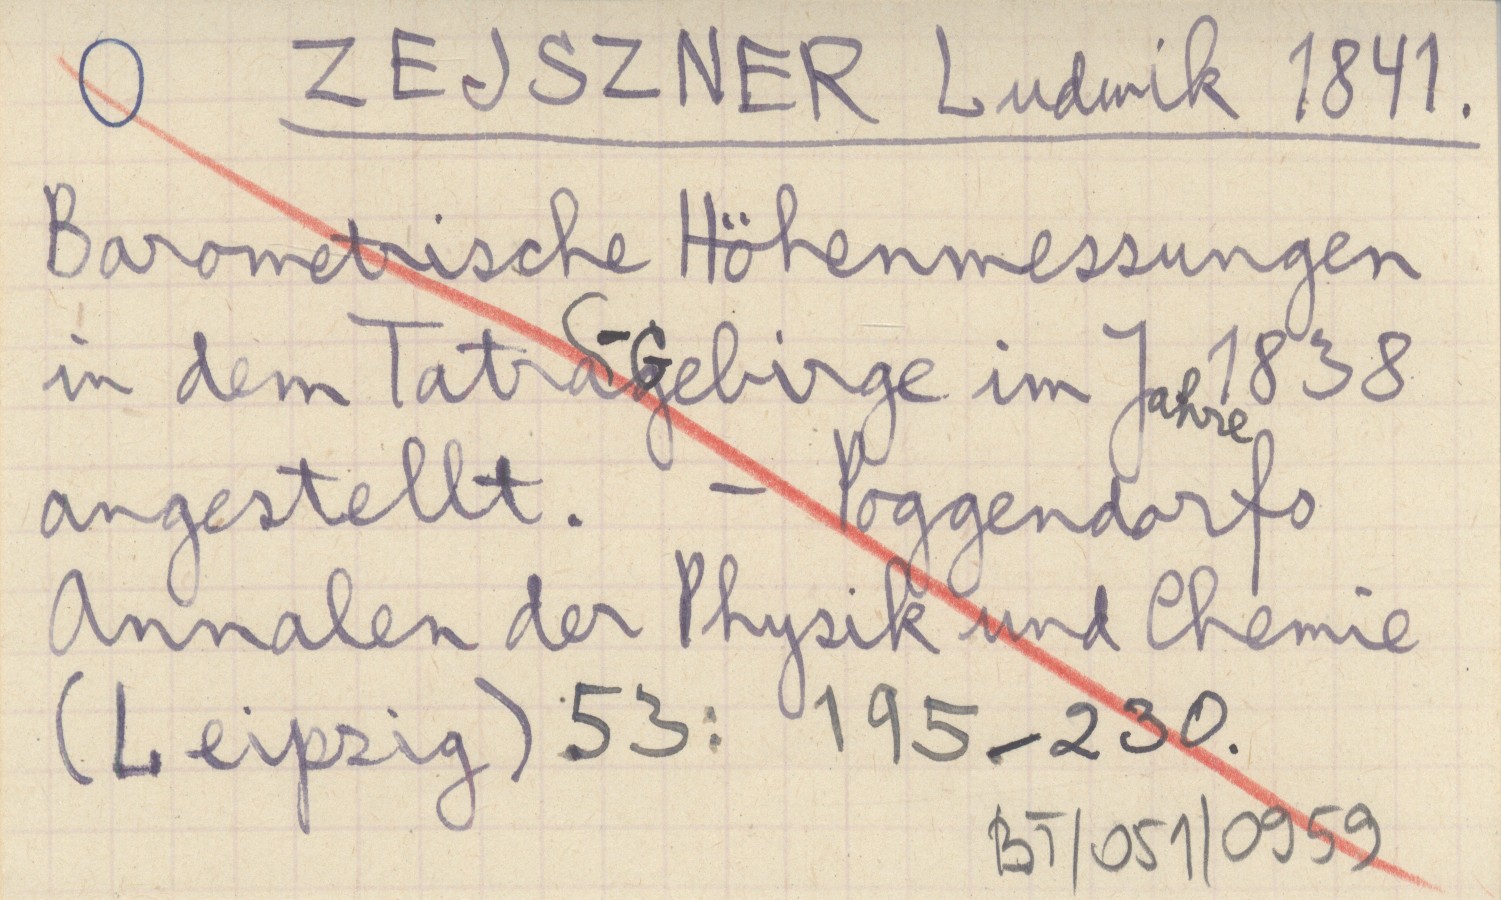 O ZEJSZNER Ludwik 1841.
Barometrische Höhenmessungen
in dem Tatra-Gebirge im Jahre 1838
angestellt. – Poggendorfs
Annalen der Physik und Chemie
(Leipzig) 53: 195–230.
BT/051/0959